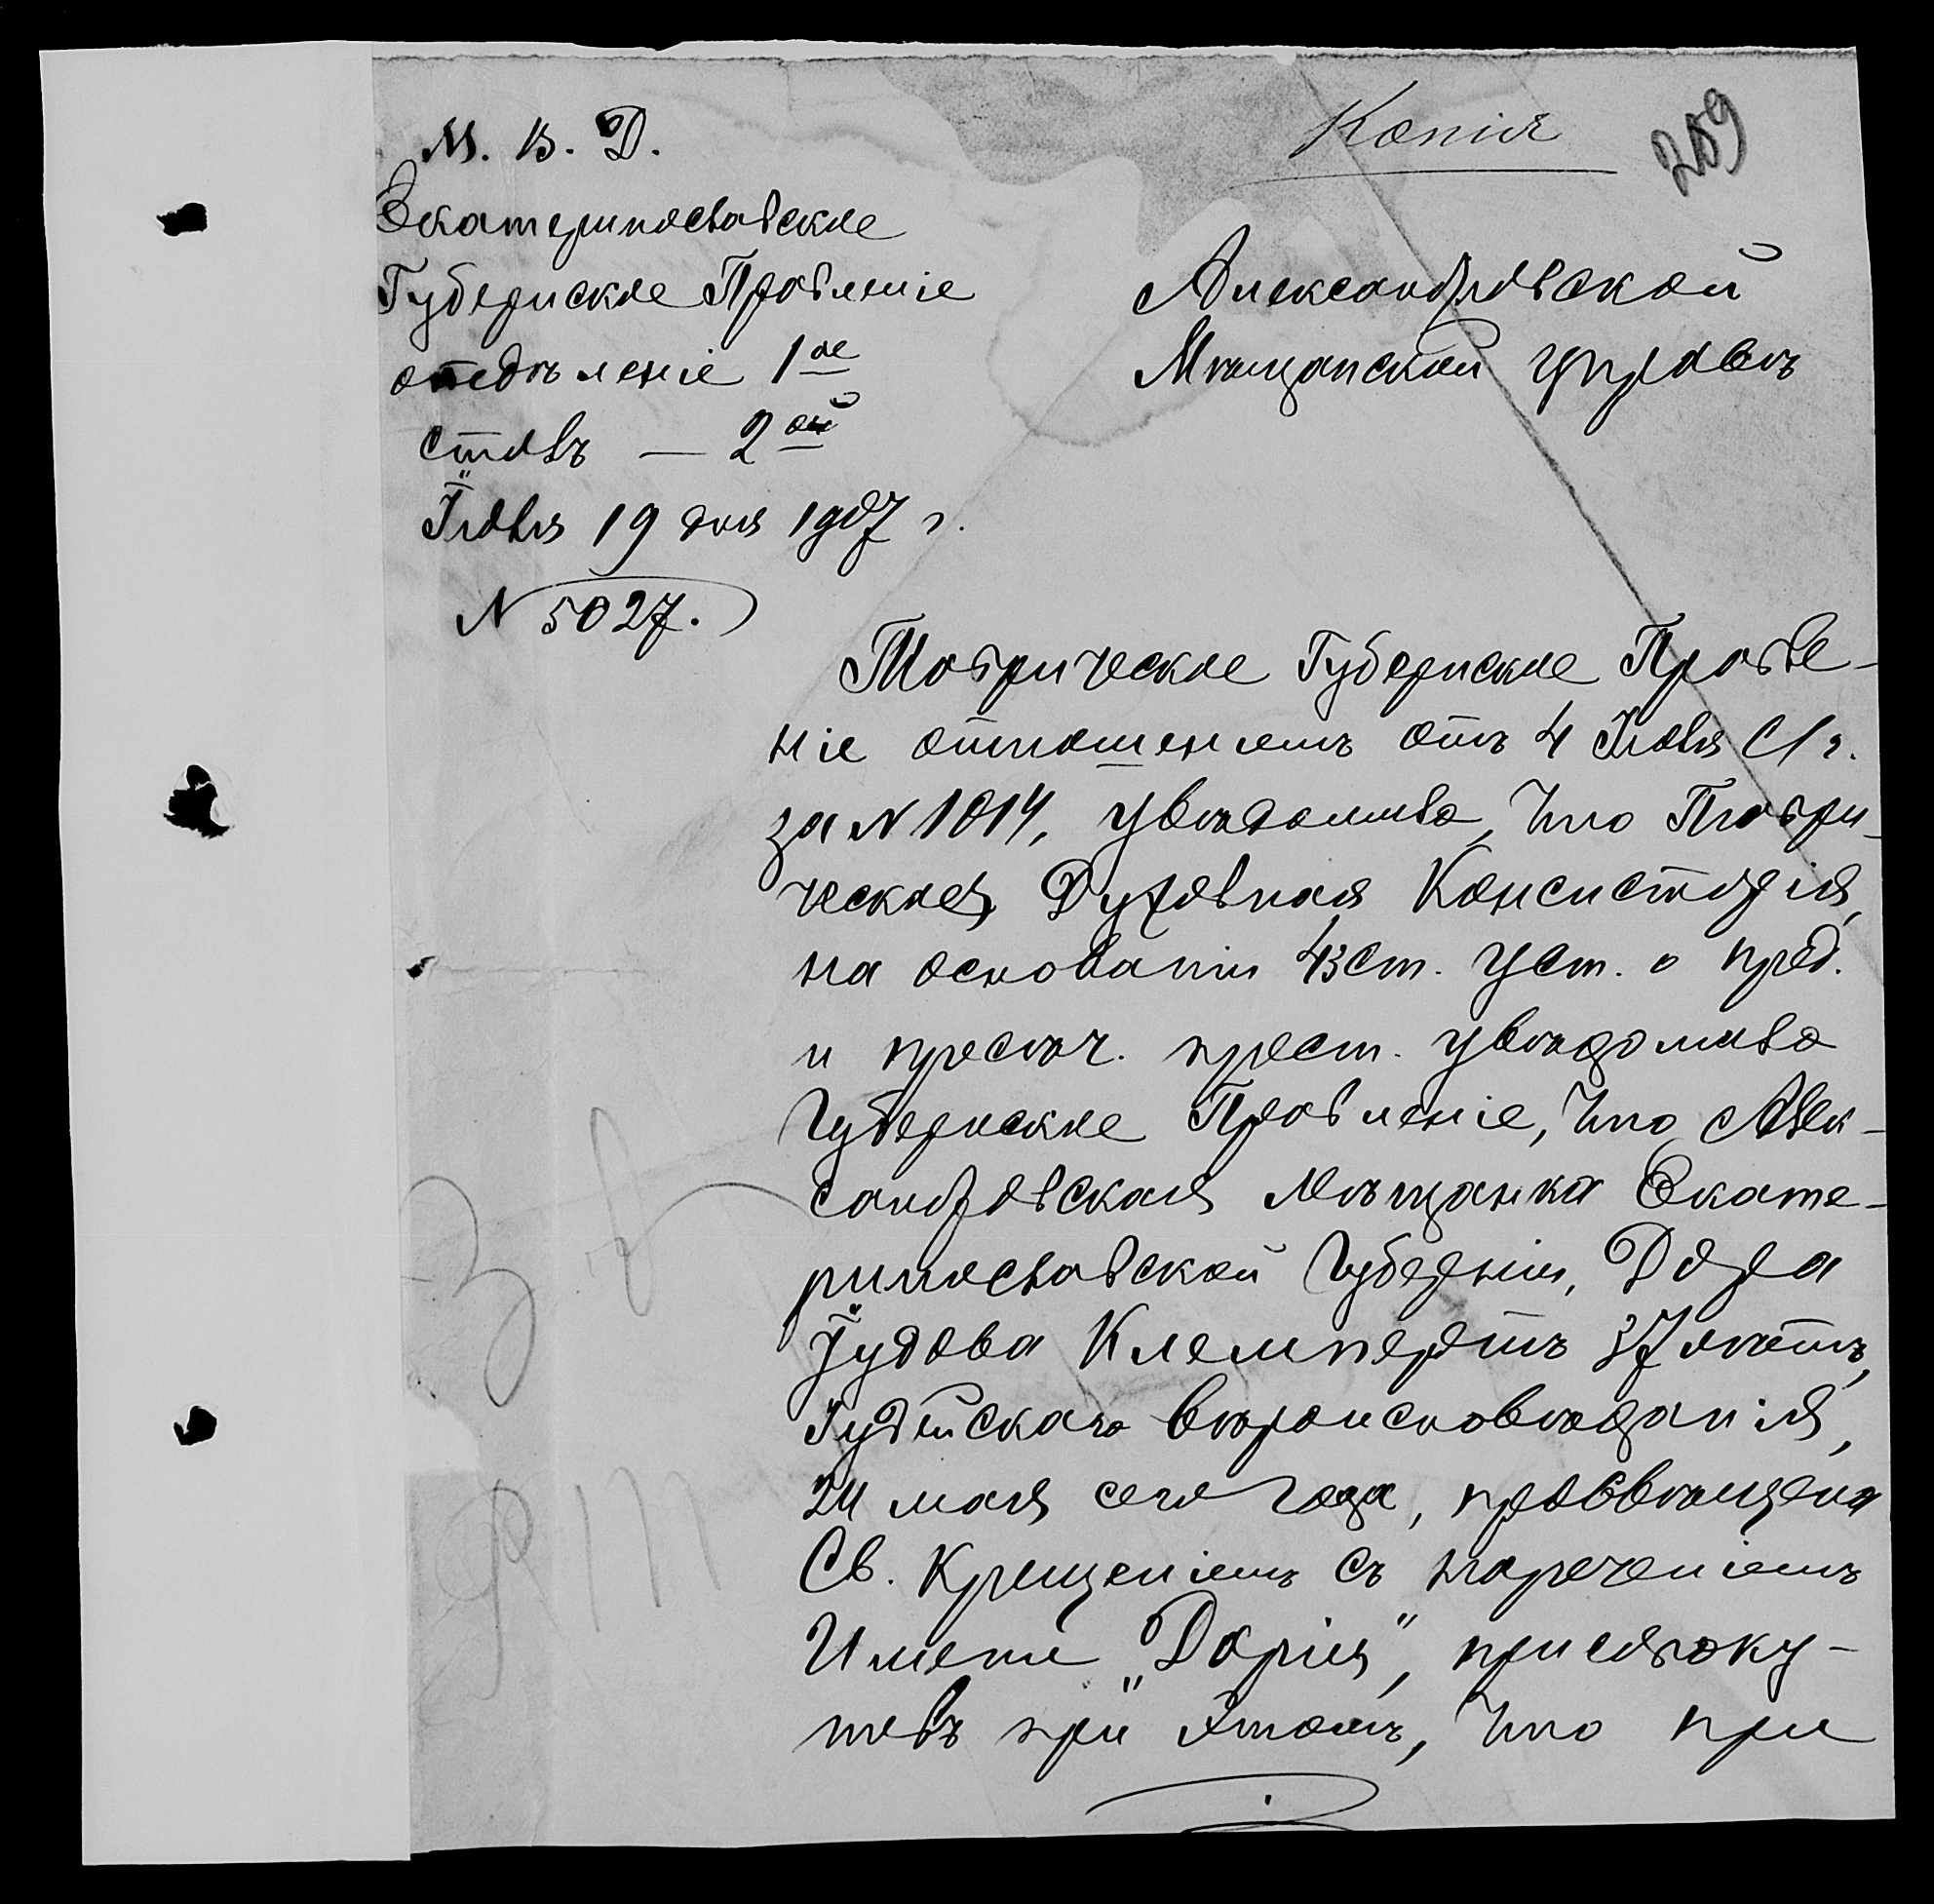 Копія
209
М. В. Д.
Екатеринославское
Губернское Правленіе
отдѣленіе 1ое
столъ — 2ой
Іюля 19 дня 1907 г.
N 5027.
Александровской
Мѣщанской управѣ
Таврическое Губернское Правле-
ніе отношеніемъ отъ 4 Іюля с/г.
за N 1014, увѣдомило, что Таври-
ческая Духовная Консисторія,
на основаніи 43 ст. Уст. о пред.
и пресѣч. прест. увѣдомила
Губернское Правленіе, что Алек-
сандровская мѣщанка Екате-
ринославской Губерніи, Дора
Іудова Клемпертъ 37 лѣтъ,
Іудейскаго вѣроисповѣданія,
24 мая сего года, просвѣщена
Св. Крещеніемъ съ нареченіемъ
Имени „Дарія", присовоку-
пивъ при этомъ, что при